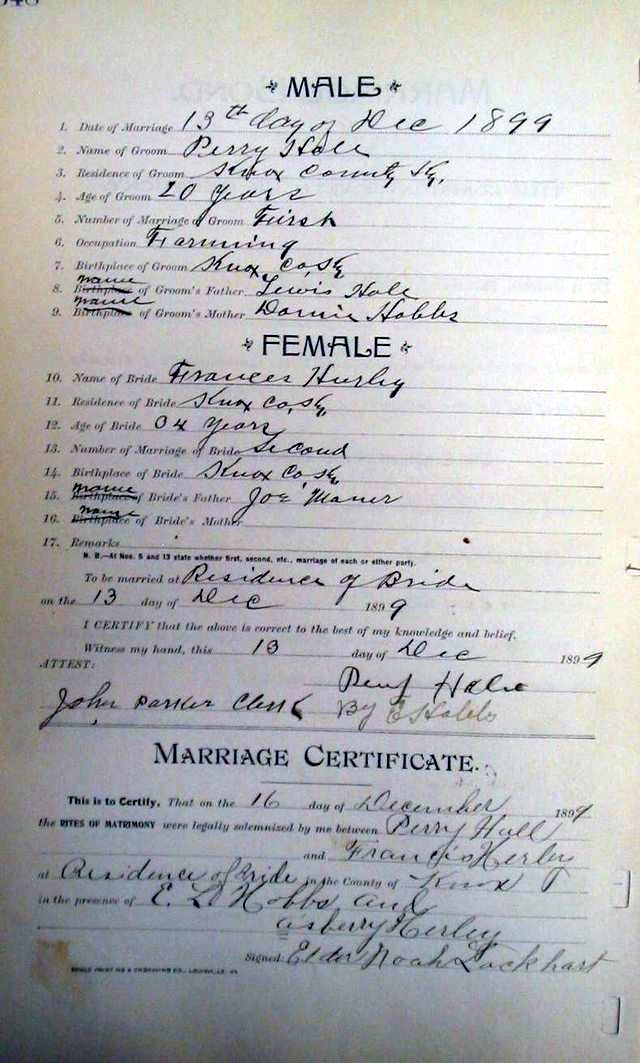 MALE
1. Date of Marriage 13th day of Dec 1899
2. Name of Groom Perry Hale
3. Residence of Groom Knox County Ky,
4. Age of Groom 20 years
5. Number of Marriage of Groom First
6. Occupation Farming
7. Birthplace of Groom Knox Co, Ky
8. Birthplace name of Groom's Father Lewis Hale
9. Birthplace name of Groom's Mother Hobbs
FEMALE
10. Name of Bride Frances Hurley
11. Residence of Bride Knox Co, Ky,
12. Age of Bride 34 years
13. Number of Marriage of Bride Second
14. Birthplace of Bride Knox Co, Ky,
15. Birthplace name of Bride's Father Joe
16. Birthplace name of Bride's Mother
17. Remarks
N. B.—At Nos. 5 and 13 state whether first, second, etc., marriage of each or either party.
To be married at Residence of Bride
on the 13 day of Dec 1899
I CERTIFY that the above is correct to the best of my knowledge and belief.
Witness my hand, this 13 day of Dec 1899
ATTEST:
Hale
John Parker Clerk By E Hobbs
MARRIAGE CERTIFICATE.
This is to Certify, That on the 16 day of December 1899
the RITES OF MATRIMONY were legally solemnized by me between Perry Hall
and Francis Herley
at Residence of Bride in the County of Knox
in the presence of E. D Hobbs and
asberry Herley
Signed: Elder Noah Lockhart